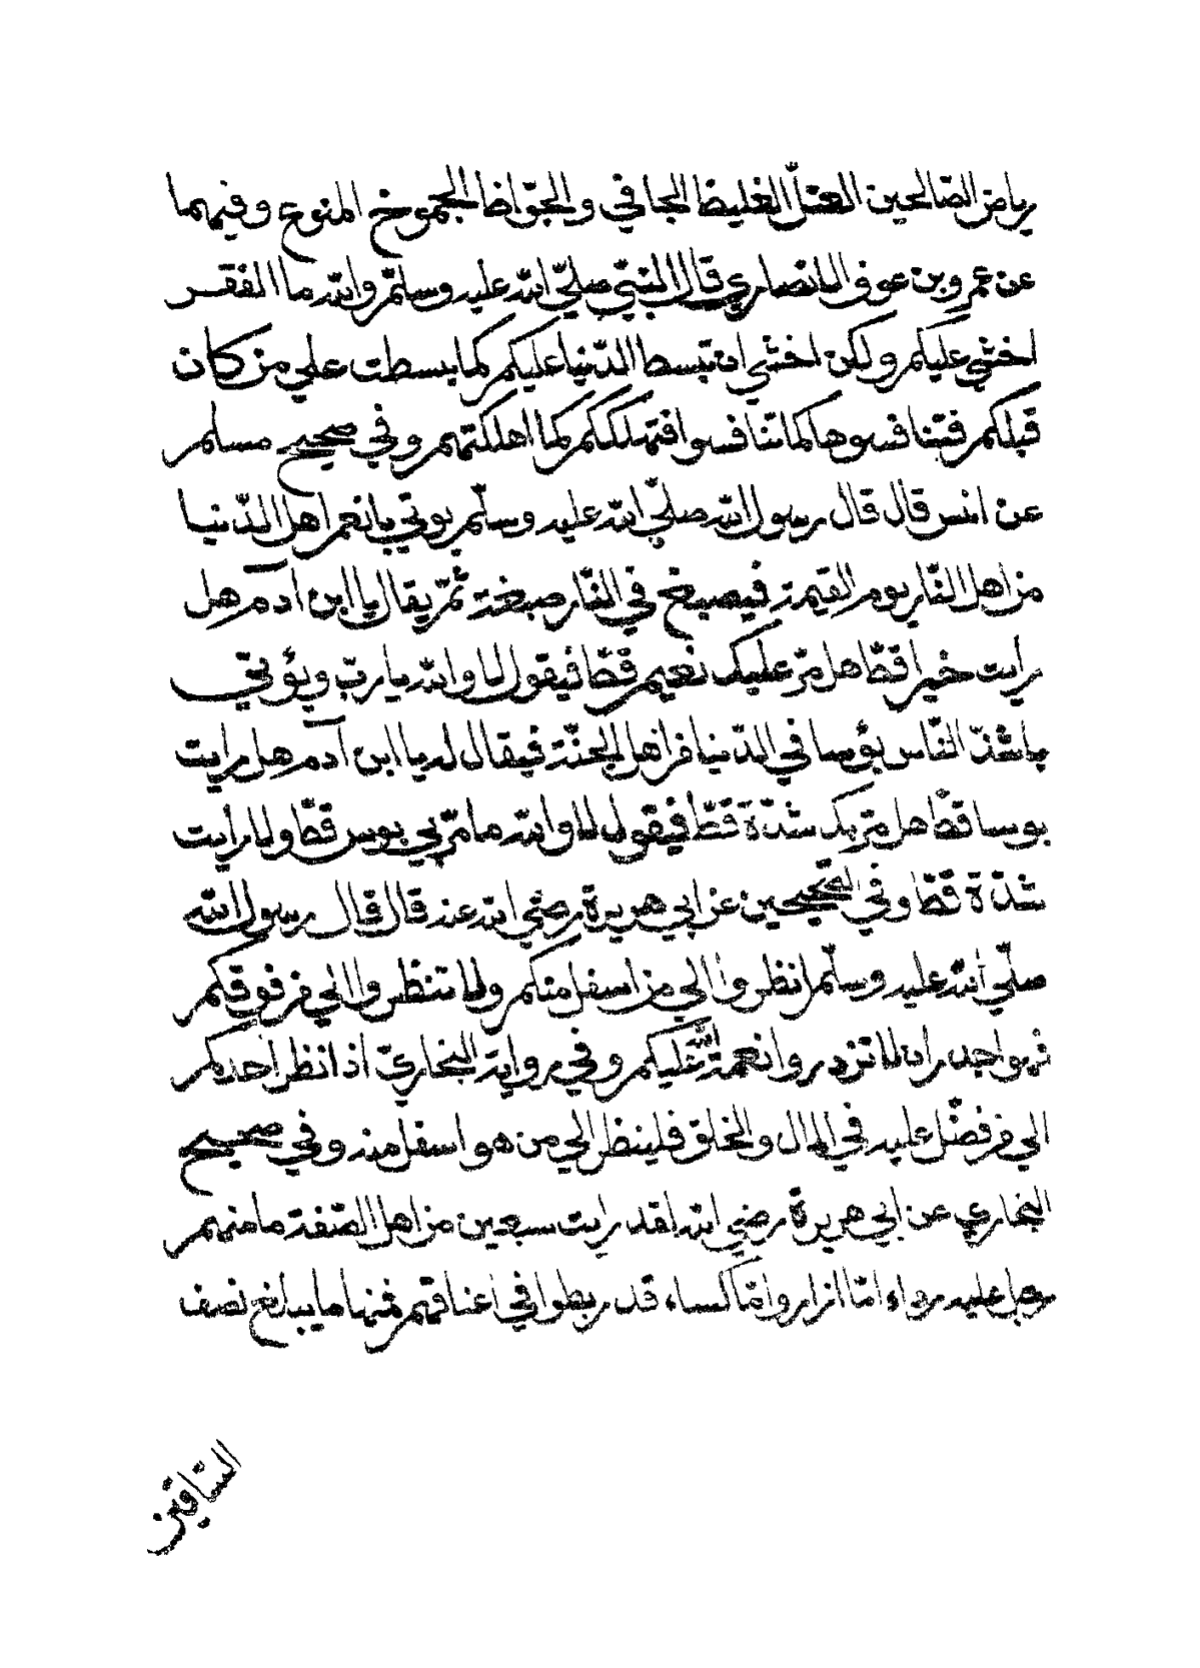 رياض الصّالحين العتلّ الغليظ الجافي والجوّاظ الجموخ المنوع وفيهما
عن عمرو بن عوف الانصاري قال النبيّ صليّ الله عليه وسلّم والله ما الفقر
اخشي عليكم ولكن اخشي ان تبسط الدّنيا عليكم كما بسطت علي من كان
قبلكم فتنافسوها كما تنافسوا فتهلككم كما اهلكتهم وفي صحيح مسلم
عن انس قال قال رسول الله صليّ الله عليه وسلّم يوتي بانعم اهل الدّنيا
من اهل النّار يوم القيمة فيصبغ في النّار صبغة ثمّ يقال يا ابن آدم هل
رايت خيرا قطّ هل مرّ عليك نعيم قطّ فيقول لا والله يا ربّ ويؤتي
باشدّ النّاس بؤسا في الدّنيا من اهل الجنّة فيقال له يا ابن آدم هل رايت
بوسا قطّ هل مرّ بك شدّة قطّ فيقول لا والله ما مرّ بي بوس قطّ ولا رايت
شدّة قطّ وفي الصّحيحين عن ابي هريرة رضي الله عنه قال قال رسول الله
صليّ الله عليه وسلّم انظروا الي من اسفل منكم ولا تنظروا الي من فوقكم
فهو اجدر ان لا تزدروا نعمة الله عليكم وفي رواية البخاريّ اذا نظر احدكم
الي من فضّل عليه في المال والخلق فلينظر الي من هو اسفل منه وفي صحيح
البخاري عن ابي هريرة رضي الله لقد رايت سبعين من اهل الصّفة ما منهم
رجل عليه رداء امّا ازار وامّا كساء قد ربطوا في اعناقهم فمنها ما يبلغ نصف
السّاقين